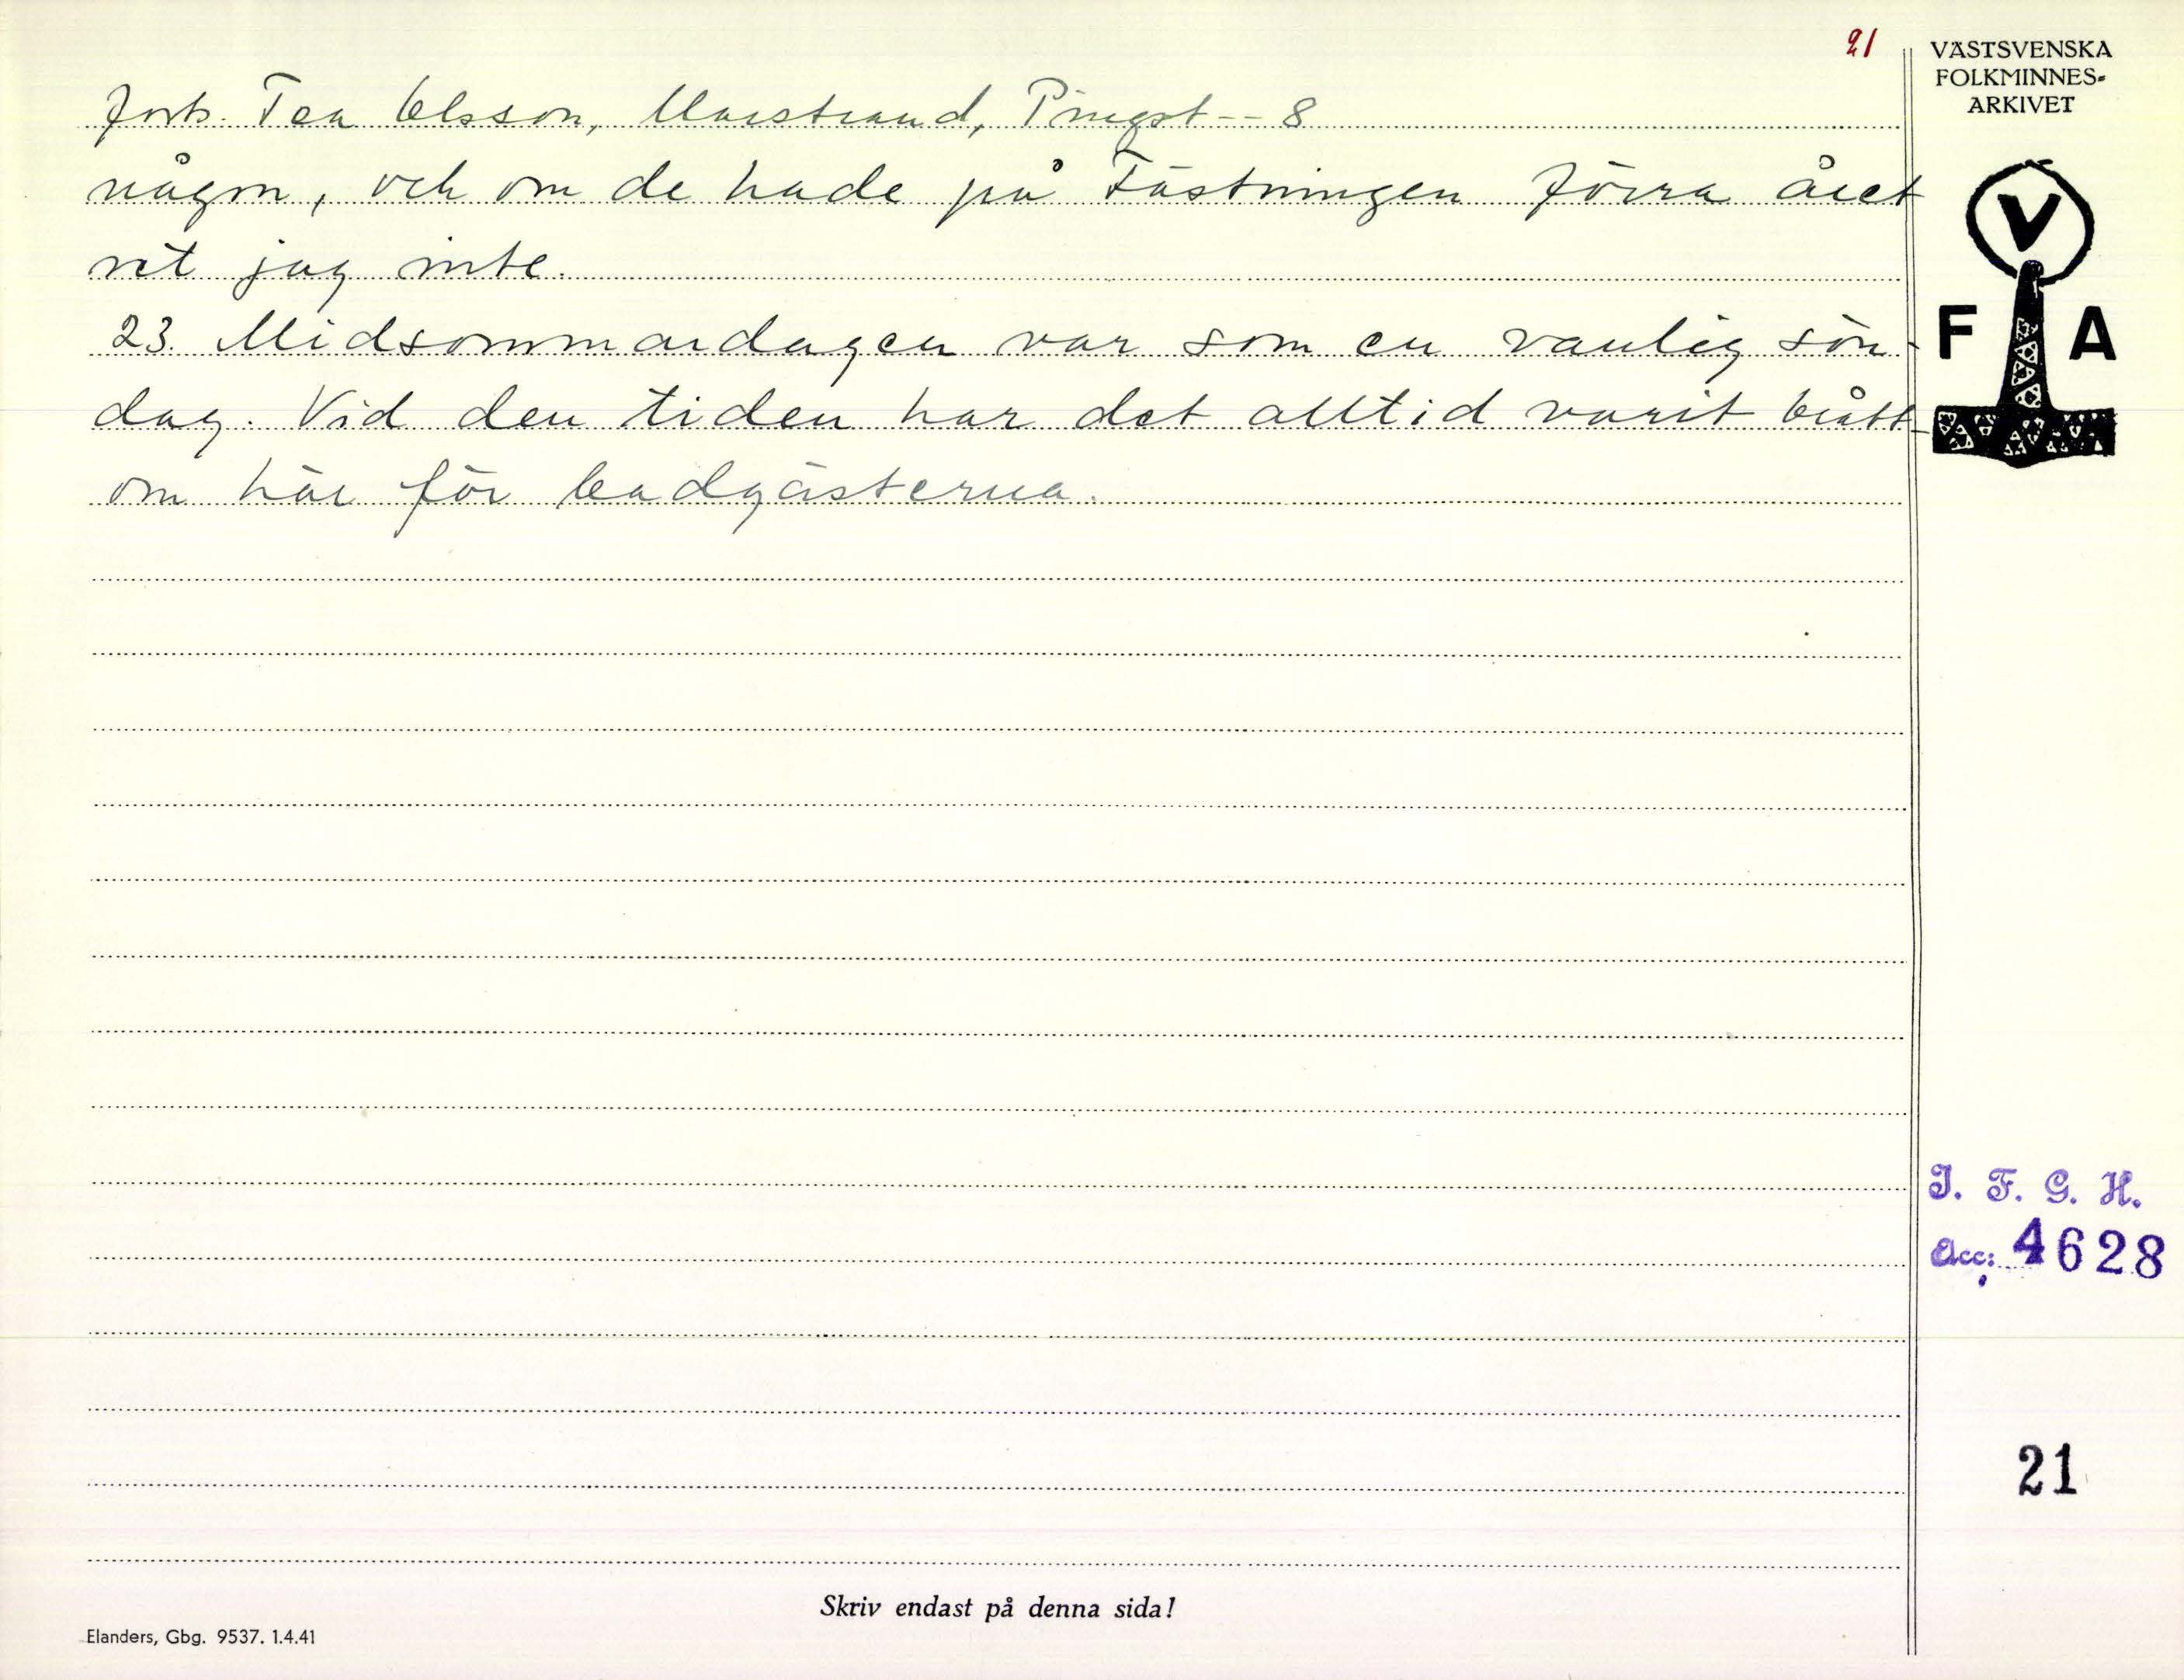 21
VÄSTSVENSKA
FOLKMINNES-
ARKIVET
forts. Tea Olsson, Marstrand, Pingst -- 8
någon, och om de hade på Fästningen förra året
vet jag inte.
23. Midsommardagen var som en vanlig sön-
dag. Vid den tiden har det alltid varit brått-
om här för badgästerna.
V
F A
I. F. G. H.
Acc: 4628
21
Skriv endast på denna sida!
Elanders, Gbg. 9537. 1.4.41